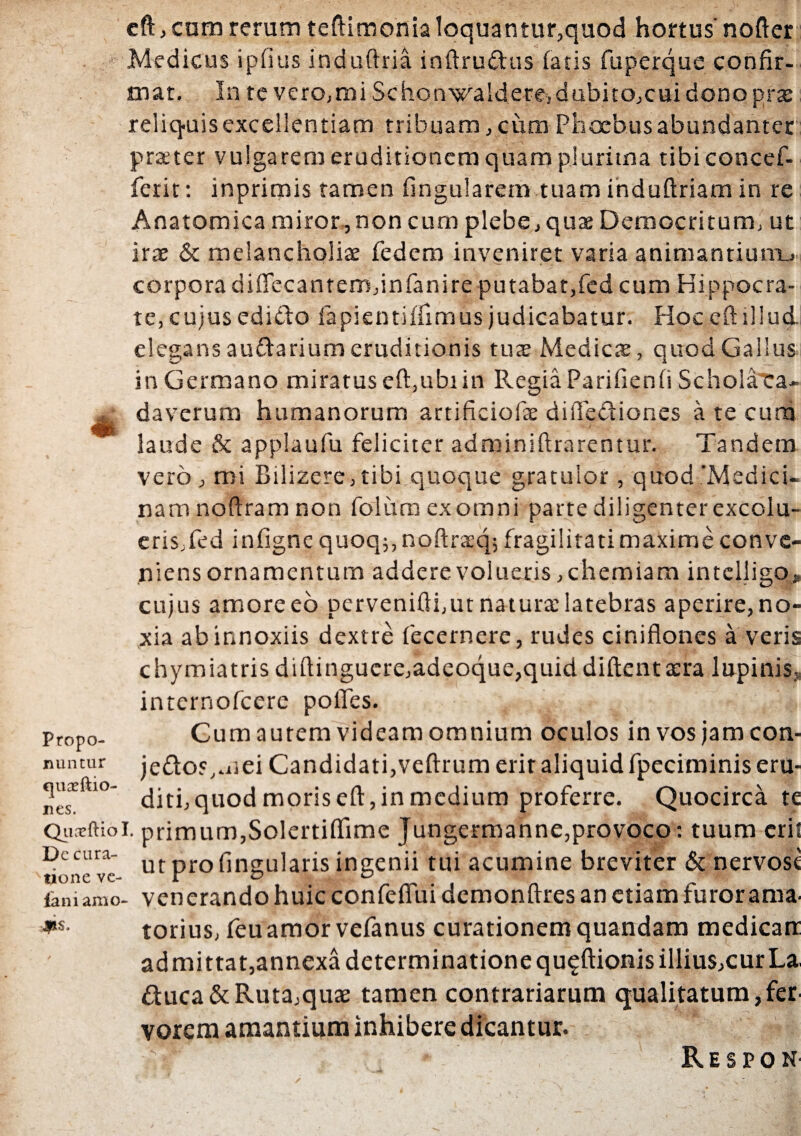 eſt, cum rerum teſtimonia loquantur, quod hortus noſter
Medicus ipſius induſtriâ inſtructus ſatis ſuperque confir-
mat. In te vero, mi Schonwaldere, dubito, cui dono præ
reliquis excellentiam tribuam, cùm Phœbus abundanter
præter vulgarem eruditionem quam plurima tibi conceſ-
ſerit: inprimis tamen ſingularem tuam induſtriam in re
Anatomica miror, non cum plebe, quæ Democritum, ut
iræ & melancholiæ ſedem inveniret varia animantium
corpora diſſecantem, inſanire putabat, ſed cum Hippocra-
te, cujus edicto ſapientiſſimus judicabatur. Hoc eſt illud
elegans auctarium eruditionis tuæ Medicæ, quod Gallus
in Germano miratus eſt, ubi in Regiâ Pariſienſi Scholâ ca-
daverum humanorum artificioſæ diſſectiones à te cum
laude & applauſu feliciter adminiſtrarentur. Tandem
verò, mi Bilizere, tibi quoque gratulor, quod Medici-
nam noſtram non ſolùm ex omni parte diligenter excolu-
eris, ſed inſigne quoq;, noſtræq; fragilitati maximè conve-
niens ornamentum addere volueris, chemiam intelligo,
cujus amore eò perveniſti, ut naturæ latebras aperire, no-
xia ab innoxiis dextrè ſecernere, rudes ciniflones à veris
chymiatris diſtinguere, adeoque, quid diſtent æra lupinis,
internoſcere poſſes.
Propo-
nuntur
quæſtio-
nes.
Quæſtio I.
De cura-
tione ve-
ſani amo-
ris.
Cum autem videam omnium oculos in vos jam con-
jectos, mei Candidati, veſtrum erit aliquid ſpeciminis eru-
diti, quod moris eſt, in medium proferre. Quocircà te
primum, Solertiſſime Jungermanne, provoco: tuum erit
ut pro ſingularis ingenii tui acumine breviter & nervosè
venerando huic confeſſui demonſtres an etiam furor ama-
torius, ſeu amor veſanus curationem quandam medicam
admittat, annexâ determinatione quęſtionis illius, cur La-
ctuca & Ruta, quæ tamen contrariarum qualitatum, fer-
vorem amantium inhibere dicantur.
Respon-